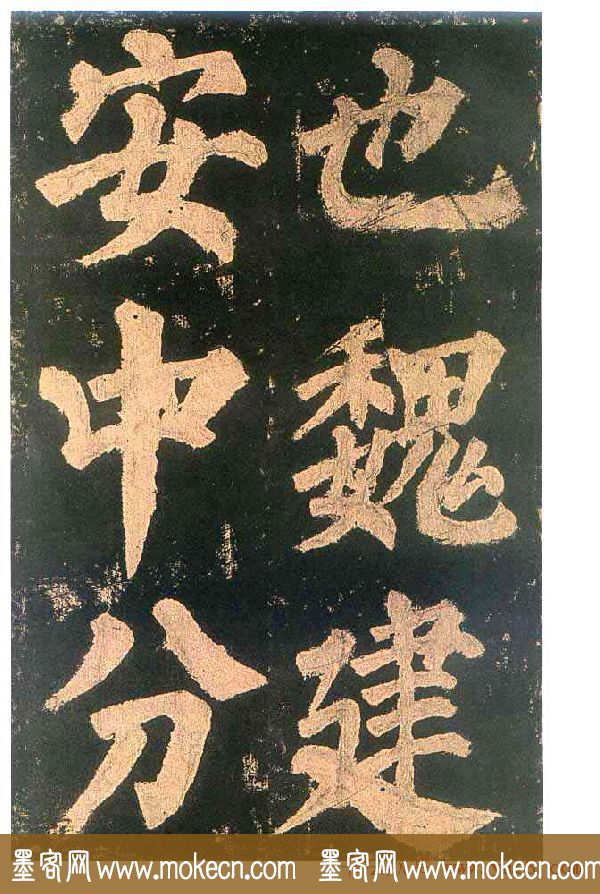 也魏建
安中分
墨客网 www.mokecn.com 墨客网 www.mokecn.com